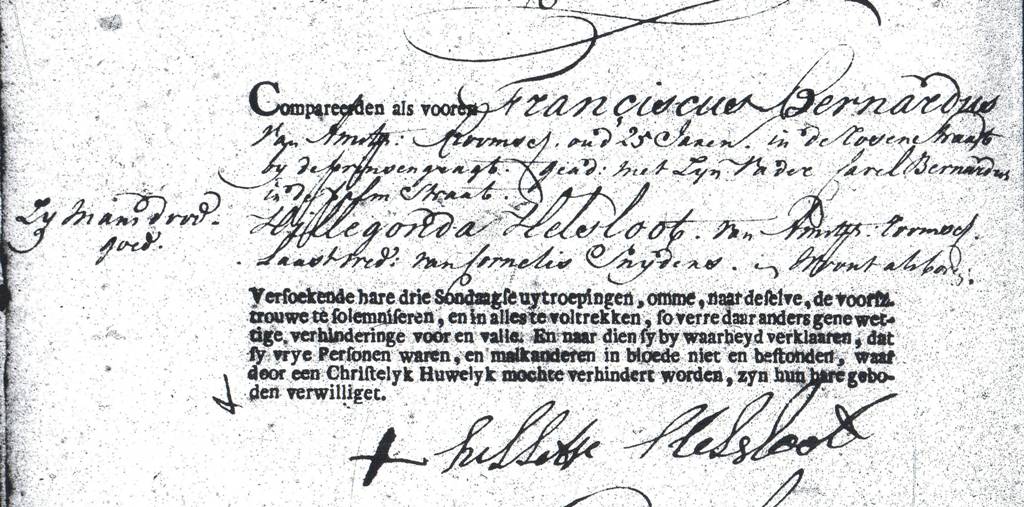 Compareerden als vooren Franciscus Bernardus
Van Amstr: Roomsch. oud 25 Jaren. in de Rosenstraat
by de prinsengragt. geads: met zyn Vader Carel Bernardus
in de palm Straat.
Hyllegonda Helsloot. van Amstr: roomsch.
Laast Wed: van Cornelis Snyders. Woont als boven:
Zy Mans dood.
goed.
Versoekende hare drie Sondaagse uytroepingen, omme, naar deselve, de voorsz.
trouwe te solemniseren, en in alles te voltrekken, so verre daar anders gene wet-
tige verhinderinge voor en valle. En naar dien sy by waarheyd verklaaren, dat
sy vrye Personen waren, en malkanderen in bloede niet en bestonden, waar
door een Christelyk Huwelyk mochte verhindert worden, zyn hun hare gebo-
den verwilliget.
Helsloot